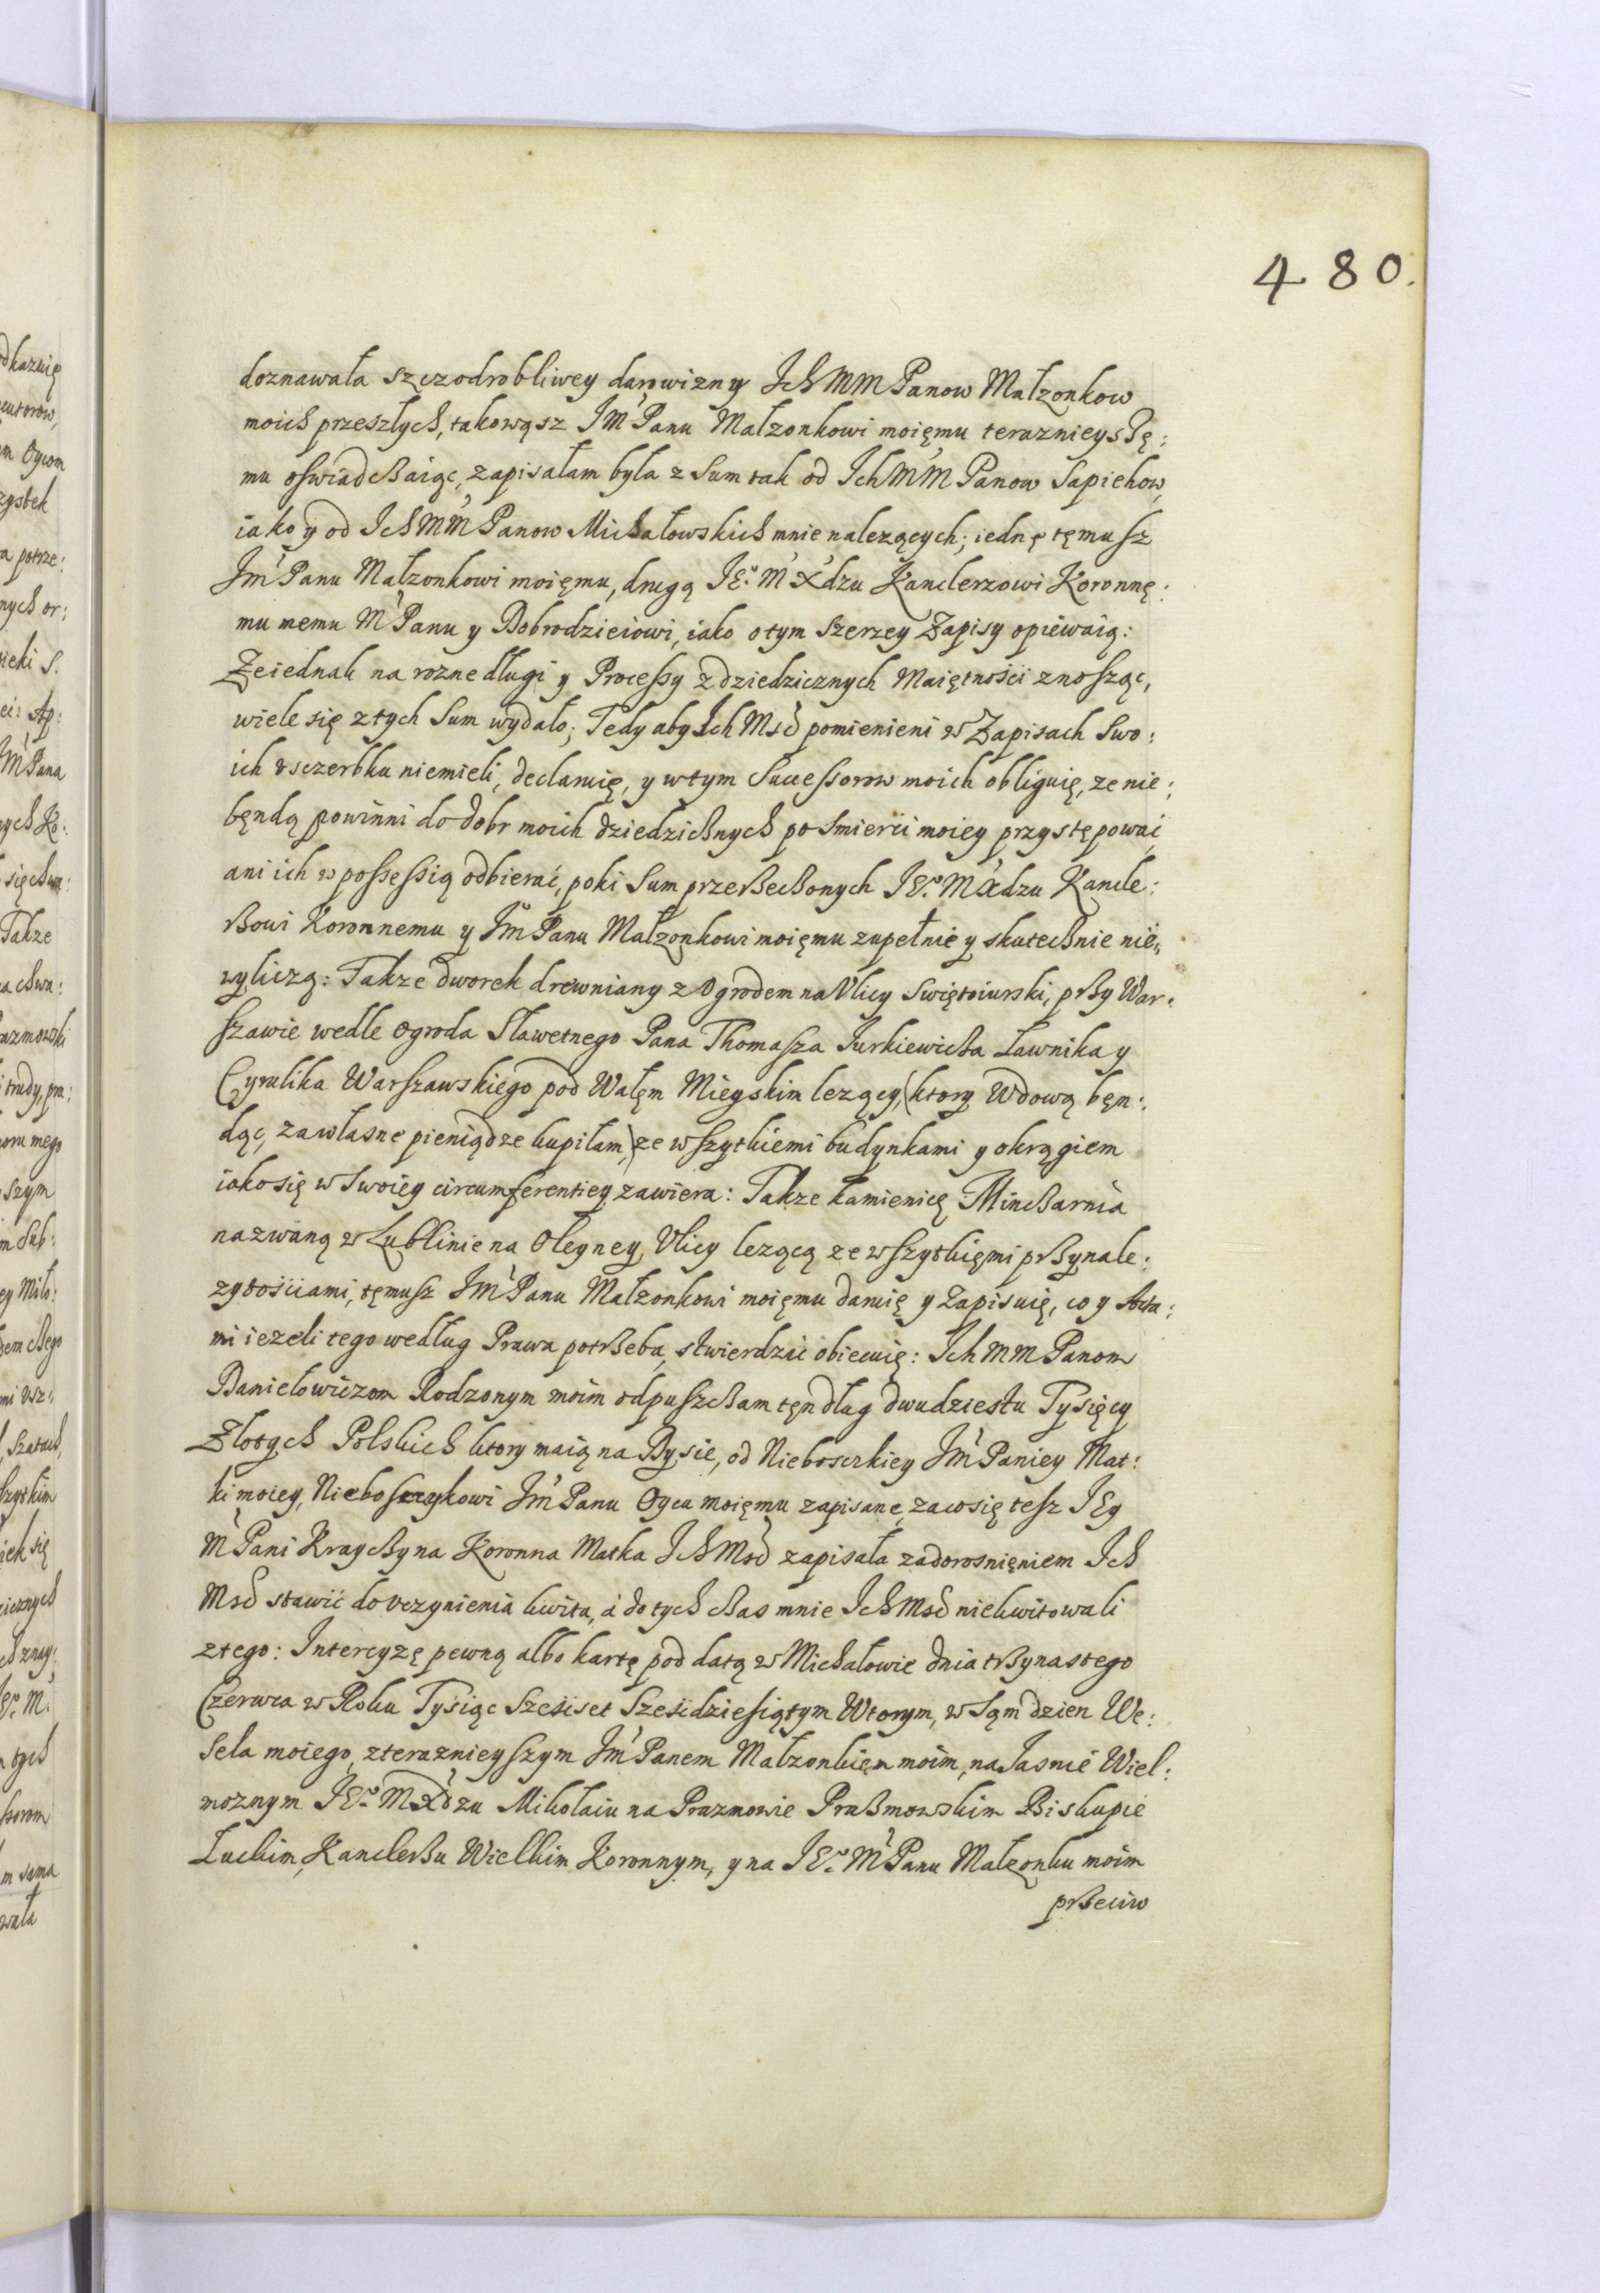 480.
doznawała szczodrobliwey darowizny Ich MM Panow Małzonkow
moich przeszłych, takowąsz Im Panu Małzonkowi moięmu teraznieyszę:
mu oswiadczaiąc, zapisałam była z Sum tak od Ich MM Panow Sapiehow,
iako y od Ich MM Panow Michałowskich mnie nalezących; iednę tęmusz
Im Panu Małzonkowi moięmu, drugą IEo M Xdzu Kanclerzowi Koronnę:
mu memu M Panu y Dobrodzieiowi, iako o tym szerzey Zapisy opiewaią:
Ze iednak na rozne długi y Processy z dziedzicznych Maiętności znosząc,
wiele się z tych Sum wydało; Tedy aby Ich Msc pomienieni w Zapisach Swo:
ich vsczerbku niemieli, declaruię, y w tym Successorow moich obliguię, ze nie:
będą powinni do dobr moich dziedzicznych po smierci moiey przystępować,
ani ich w possessią odbierać, poki Sum przerzeczonych IEo M Xdzu Kancle:
rzowi Koronnemu y Im Panu Małzonkowi moięmu zupełnie y skutecznie nie
wyliczą: Takze dworek drewniany z Ogrodem na Vlicy Swiętoiurski, przy War:
szawie wedle Ogroda Sławetnego Pana Thomasza Iurkiewicza Ławnika y
Cyrulika Warszawskiego pod Wałęm Mieyskim lezący, (ktory Wdową bęn:
dąc, za własne pieniądze kupiłam,) ze wszytkiemi budynkami y okrągiem
iako się w Swoiey circumferentiey zawiera: Takze kamienicę Minczarnia
nazwaną w Lublinie na Oleyney Vlicy lezącą ze wszytkięmi przynale:
zytościami, tęmusz Im Panu Małzonkowi moięmu daruię y Zapisuię, co y Acta:
mi iezeli tego według Prawa potrzeba, stwierdzić obiecuię: Ich MM Panom
Daniełowiczom Rodzonym moim odpuszczam tęn dług dwudziestu Tysięcy
Złotych Polskich ktory maią na Bysie, od Nieboszczkiey Im Paniey Mat:
ki moiey, Nieboszczykowi Im Panu Oycu moięmu zapisane, zaco się tesz IEy
M Pani Krayczyna Koronna Matka Ich Msc zapisała za dorosnięniem Ich
Msc stawić do vczynienia kwitu, a do tych czas mnie Ich Msc niekwitowali
z tego: Intercyzę pewną albo kartę pod datą w Michałowie dnia trzynastego
Czerwca w Roku Tysiąc Sześćset Sześćdziesiątym Wtorym, w Sąm dzien We:
sela moiego, z teraznieyszym Im Panem Małzonkięm moim, na Iasnie Wiel:
moznym IEo M Xdzu Mikołaiu na Prazmowie Prazmowskim Biskupie
Łuckim, Kanclerzu Wielkim Koronnym, y na IEo M Panu Małzonku moim
przeciw